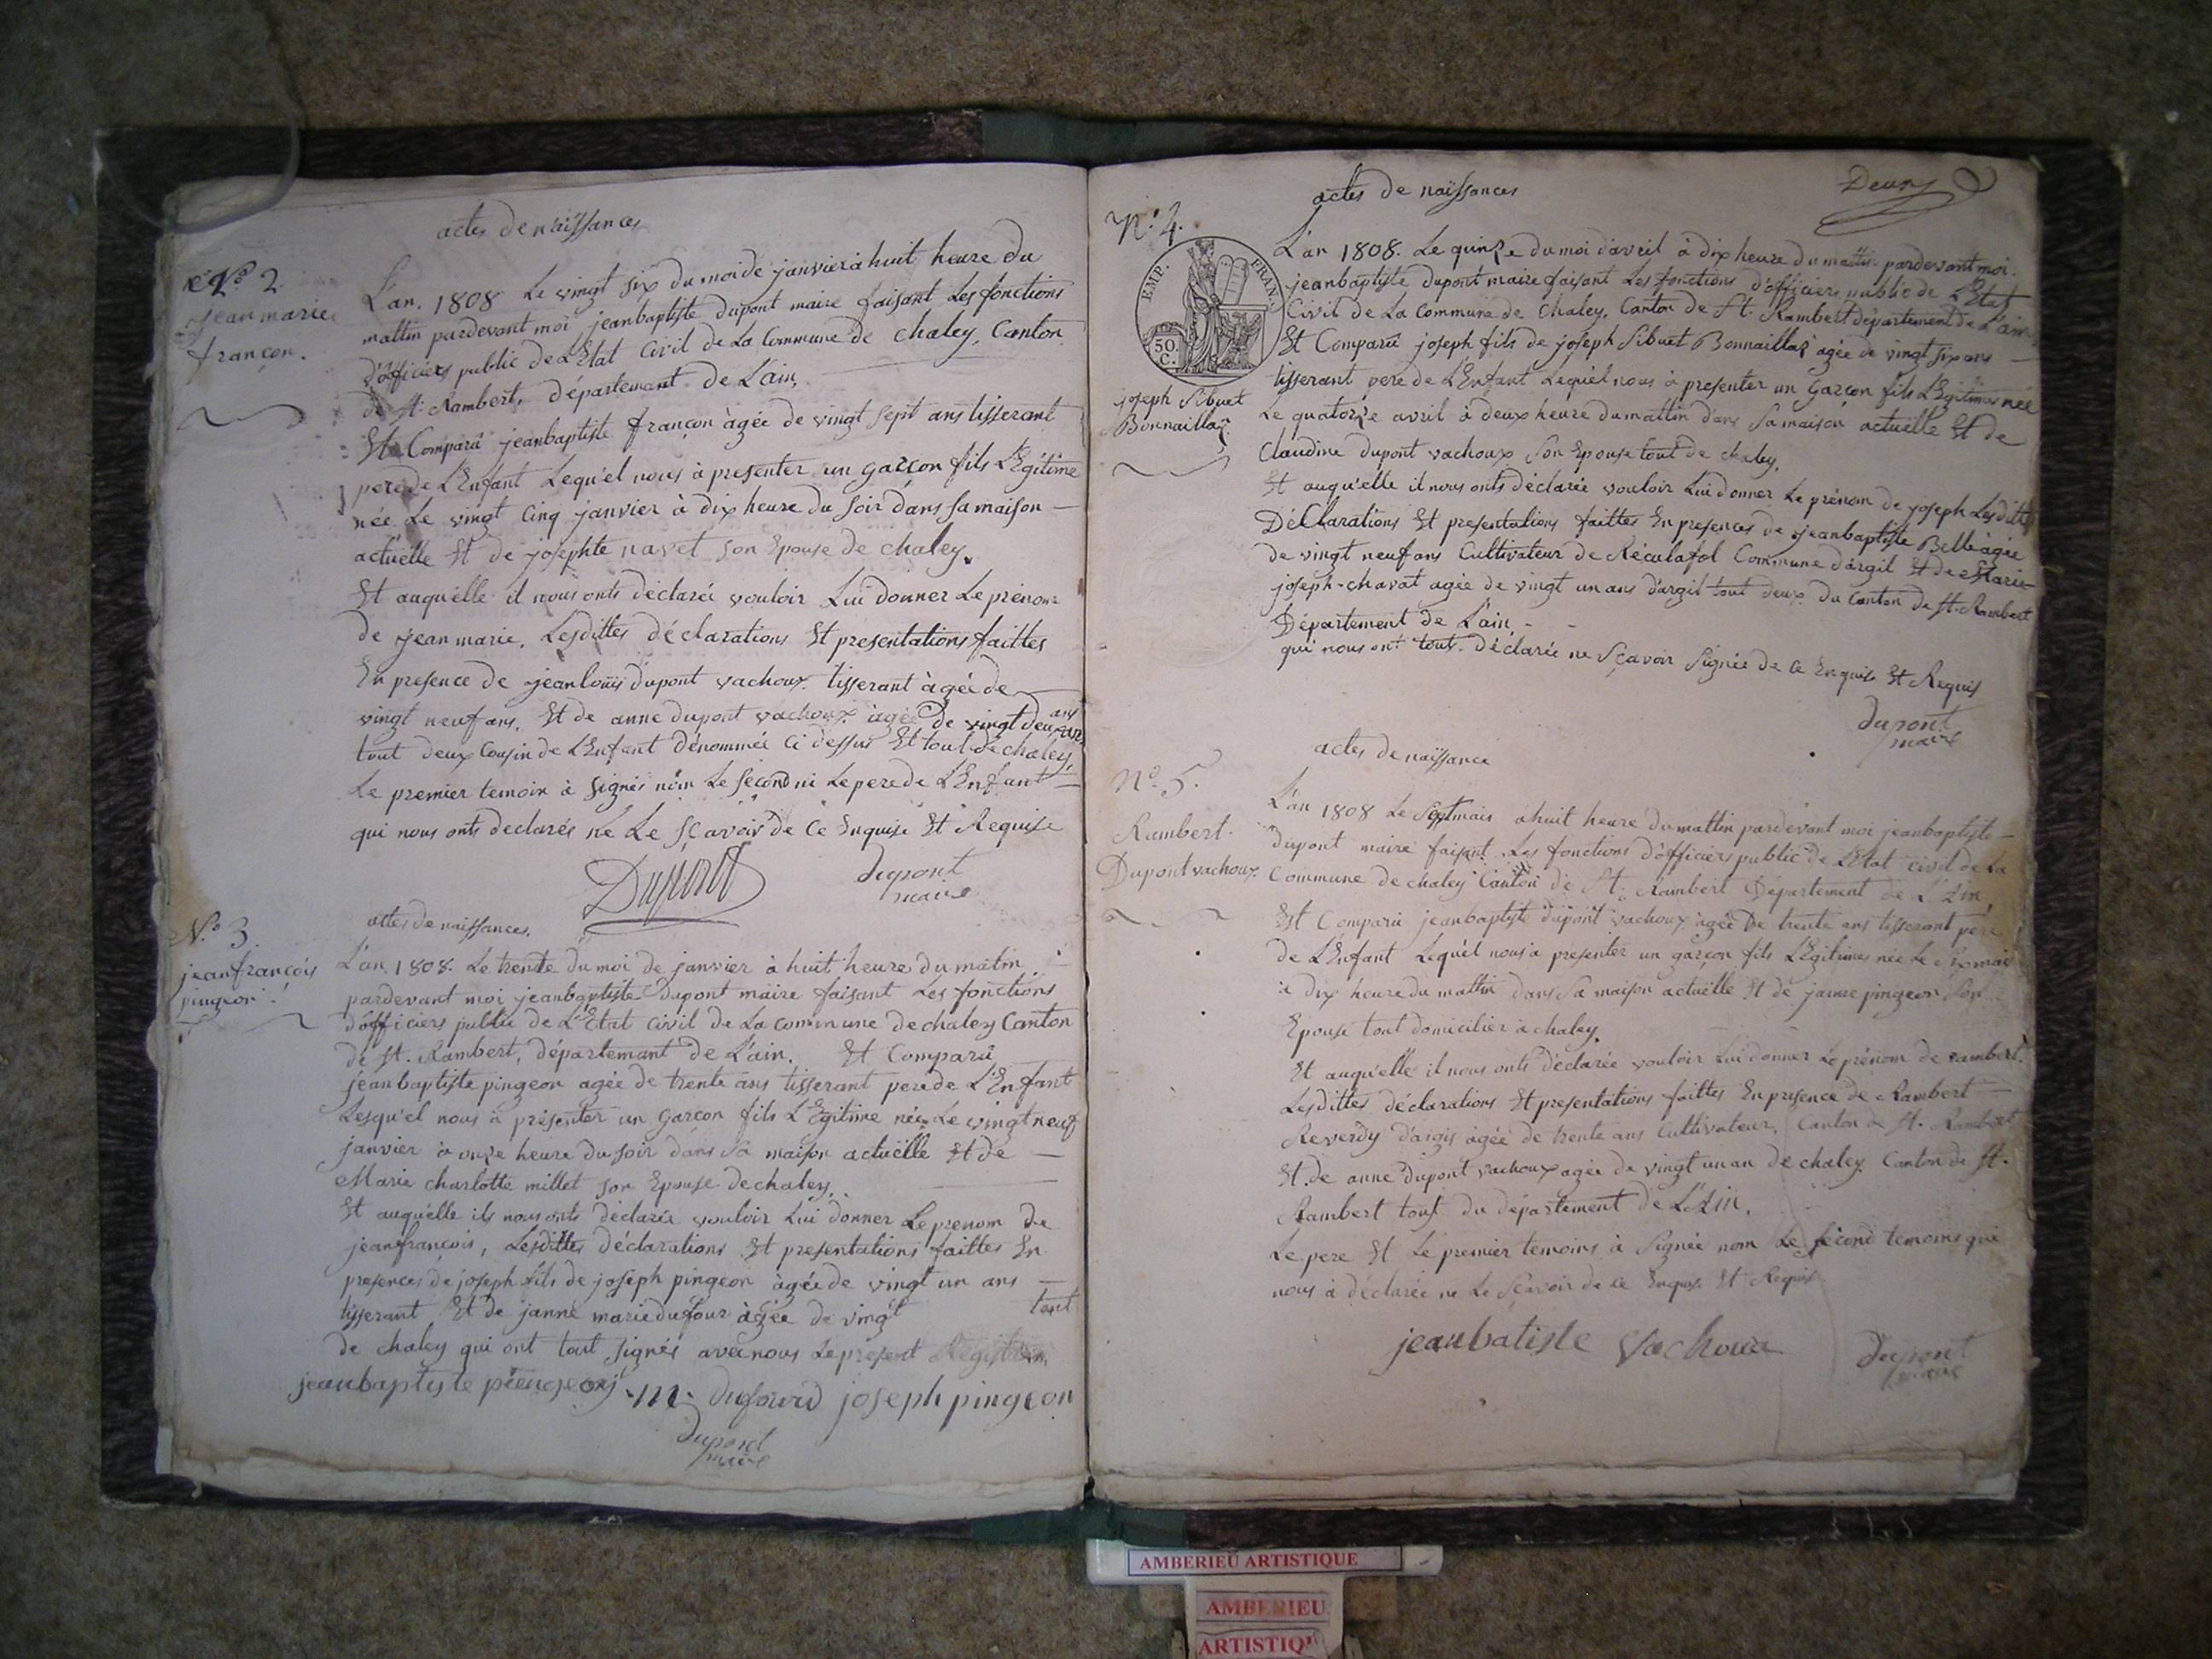 actes de naissances
N.º 2.
jean marie
françon.
L'an. 1808 Le vingt six du moi de janvier à huit heure du
mattin pardevant moi jeanbaptiste dupont maire faisant Les fonctions
d'officiers public de L'Etat Civil de La Commune de chaley, Canton
de St. Rambert, département de L'ain,
Et Comparû jeanbaptiste françon àgée de vingt sept ans tisserant
pere de L'Enfant Lequ'el nous à presenter un garçon fils L'Egitime
née Le vingt Cinq janvier à dix heure du soir dans sa maison —
actuelle Et de josephte navet son Epouse de chaley.
Et auqu'elle il nous onts déclarée vouloir Lui donner Le prénom
de jean marie, Lesdittes déclarations Et presentations faittes
En presence de jean louis dupont vachoux tisserant àgée de —
vingt neuf ans, Et de anne dupont vachoux àgée de vingt deux ans
tout deux Cousin de L'Enfant dénommée Ci dessus Et tout de chaley,
Le premier temoin à signés nom Le second ni Le pere de L'Enfant —
qui nous onts declarés ne Le sçavoir de Ce Enquise Et Requise
Dupont
dupont
maire
N.º 3.
jean françois
pingeon.
actes de naissances.
L'an. 1808. Le trente du moi de janvier à huit heure du matin
pardevant moi jeanbaptiste Dupont maire faisant Les fonctions
d'officiers public de L'Etat Civil de La Commune de chaley Canton
de St. Rambert, département de L'ain. Et Comparû
jeanbaptiste pingeon agée de trente ans tisserant pere de L'Enfant
Lesqu'el nous à présenter un Garçon fils L'Egitime née Le vingt neuf
janvier à onze heure du soir dans sa maison actuelle Et de —
Marie charlotte millet son Epouse de chaley,
Et auqu'elle ils nous onts déclarée vouloir Lui donner Le prenom de
jean françois, Lesdittes déclarations Et presentations faittes En
presences de joseph fils de joseph pingeon àgée de vingt un ans —
tisserant Et de janne marie dufour àgée de vingt tout
de chaley qui ont tout signés avec nous Le present Registre
jeanbaptiste piengeon m. dufourd joseph pingeon
dupont
maire
actes de naissances
N.º 4.
EMP. FRAN.
50.
C.
joseph Sibuet
Bonnaillaz
L'an 1808. Le quinze du moi d'avril à dix heure du mattin pardevant moi
jeanbaptiste dupont maire faisant Les fonctions d'officiers public de L'Etat
Civil de La Commune de Chaley, Canton de St. Rambert département de L'ain,
Et Comparû joseph fils de joseph Sibuet Bonnaillaz agée de vingt six ans —
tisserant pere de L'Enfant Lequ'el nous à presenter un Garçon fils L'Egitimes née
Le quatorze avril à deux heure du mattin dans Sa maison actuelle Et de
Claudine dupont vachoux Son Epouse tout de chaley,
Et auqu'elle il nous onts déclarée vouloir Lui donner Le prénom de joseph Lesdittes
Déclarations Et presentations faittes En presences de jeanbaptiste Belle àgée
de vingt neuf ans Cultivateur de Réculafol Commune d'argit Et de Marie
joseph chavat agée de vingt un ans d'argit tout deux du Canton de St. Rambert
Département de L'ain. - -
qui nous ont tout déclarée ne Sçavoir Signée de Ce Enquise Et Requis
dupont
maire
N.º 5.
Rambert
Dupont vachoux.
actes de naissance
L'an 1808 Le Sept mais à huit heure du mattin pardevant moi jeanbaptiste —
dupont maire faisant Les fonctions d'officiers public de L'Etat civil de La
Commune de chaley Canton de St. Rambert Département de L'Ain,
Et Comparû jeanbaptiste dupont vachoux àgée de trente ans tisserant pere
de L'Enfant Lequ'el nous à presenter un garçon fils L'Egitimes née Le Six mais
à dix heure du mattin dans Sa maison actuëlle Et de janne pingeon Son
Epouse tout domicilier à chaley.
Et auqu'elle il nous onts déclarée vouloir Lui donner Le prénom de rambert.
Lesdittes déclarations Et presentations faittes En presence de Rambert —
Reverdy d'argis àgée de trente ans Cultivateur, Canton de St. Rambert
Et de anne dupont vachoux agée de vingt un an de chaley Canton de St.
Rambert tout du département de L'Ain.
Le pere Et Le premier temoins à Signée nom Le Second temoins qui
nous à déclarée ne Le Sçavoir de Ce Enquis Et Requis
jeanbatiste vachoux
dupont
maire
AMBERIEU ARTISTIQUE
AMBERIEU
ARTISTIQU